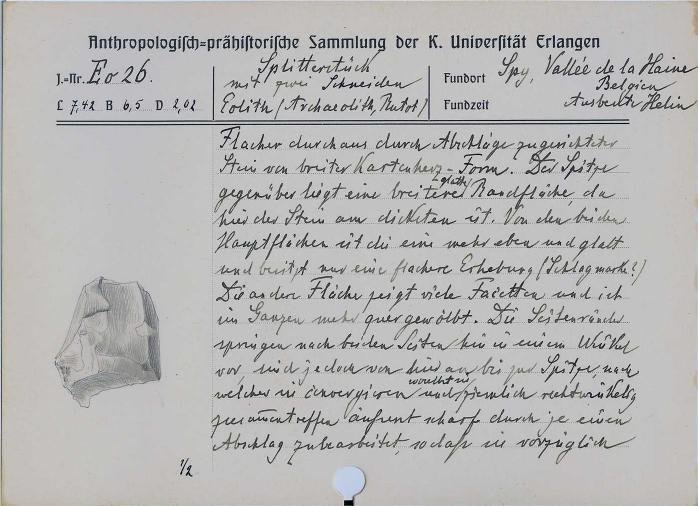 Anthropologisch=prähistorische Sammlung der K. Universität Erlangen
J.=Nr. Eo 26.
L 7,42 B 6,5 D 2,02
Splitterstück
mit zwei Schneiden
Eolith (Archaeolith, Rutot)
Fundort Spy, Vallée de la Haine
Belgien
Fundzeit Ausbeute Helin
Flacher durchaus durch Abschläge zugerichteter
Stein von breiter Kartenherz-Form. Der Spitze
gegenüber liegt eine breitere glatte Randfläche, da
hier der Stein am dicksten ist. Von den beiden
Hauptflächen ist die eine mehr eben und glatt
und besitzt nur eine flachere Erhebung (Schlagmarke?)
Die andere Fläche zeigt viele Facetten und ist
im Ganzen mehr quergewölbt. Die Seitenränder
springen nach beiden Seiten hin in einem Winkel
vor, sind jedoch von hier an bis zur Spitze, nach
welcher sie convergieren und ziemlich rechtwinkelig
zusammentreffen äusserst scharf durch je einen
Abschlag zubearbeitet, so dass sie vorzüglich
1/2